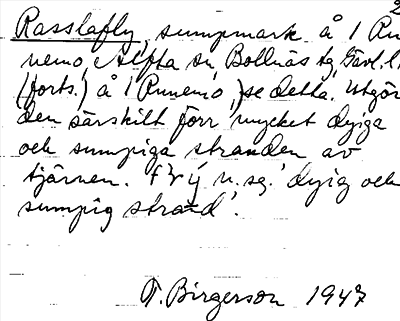 2
Rasslafly, sumpmark å 1 Run
nemo, Alfta sn, Bollnäs tg, Gävl. l.
(forts.) å 1 Runemo, se detta. Utgör
den särskilt förr mycket dyiga
och sumpiga stranden av
tjärnen. n. sg. 'dyig och
sumpig strand'.
T. Birgerson 1947